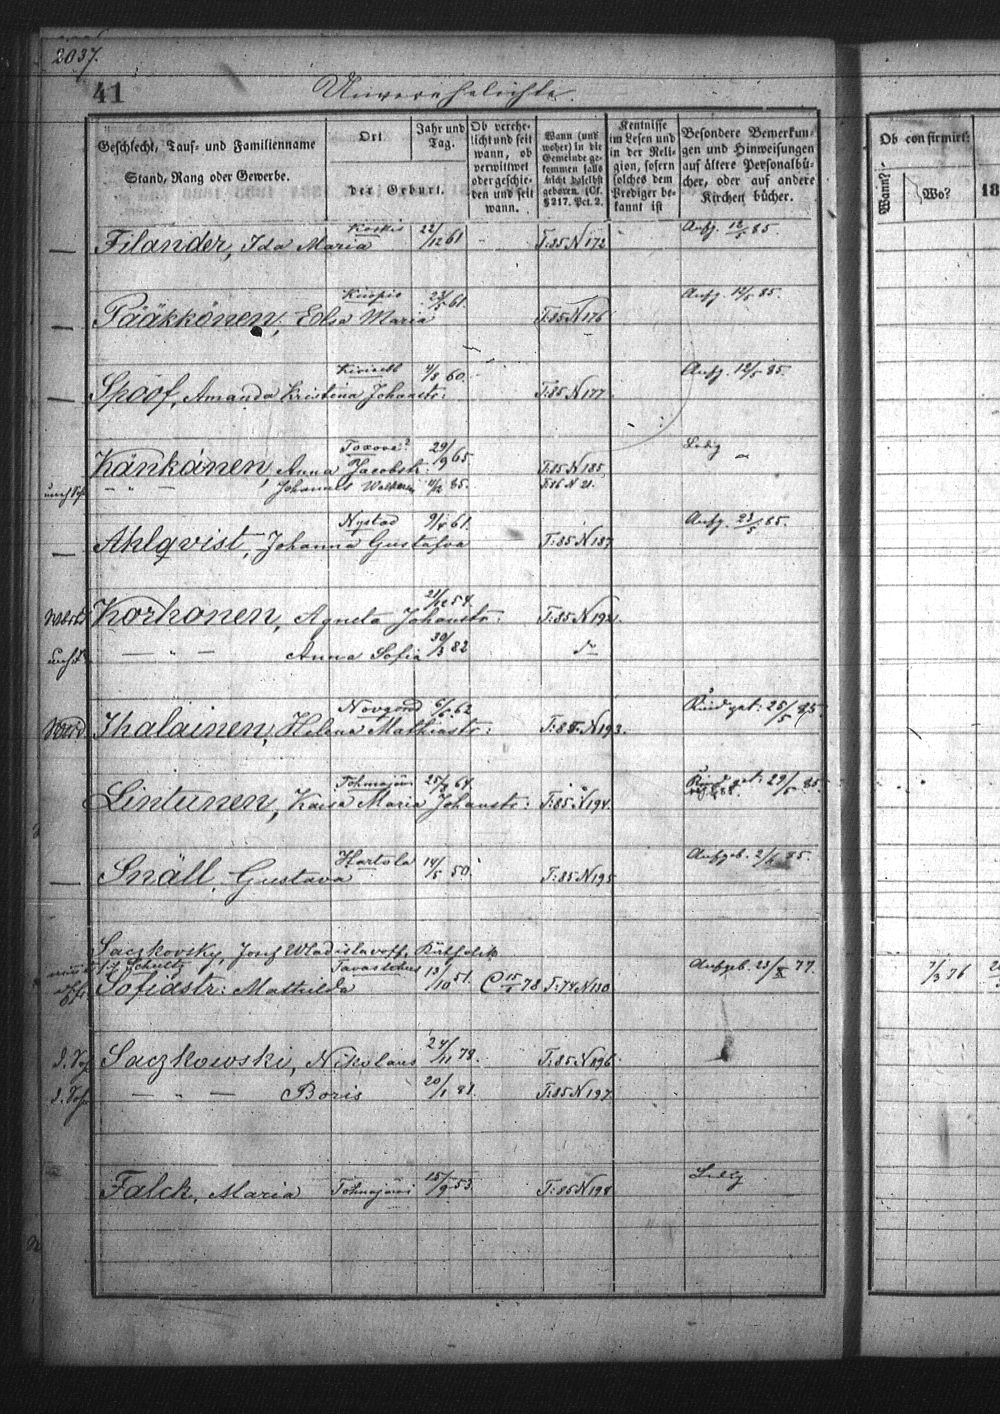 2037.
41
Unverehelichte.
Geschlecht, Tauf- und Familienname
Stand, Rang oder Gewerbe.
Ort
Jahr und Tag.
der Geburt.
Ob verehe-
licht und seit
wann, ob
verwittwet
oder geschie-
den und seit
wann.
Wann (und
woher) in die
Gemeinde ge-
kommen falls
nicht daselbst
geboren. (Cf.
§ 217. Pct. 2.
Kentnisse
im Lesen und
in der Reli-
gion, sofern
solches dem
Prediger be-
kannt ist
Besondere Bemerkun-
gen und Hinweisungen
auf ältere Personalbü-
cher, oder auf andere
Kirchen bücher.
Ob confirmirt:
Wann?
Wo?
18
Filander, Ida Maria Koskis 22/12 61 T:85 N 172 Aufg. 12/5 85.
Pääkkönen, Elsa Maria Kuopio 61. T:85 N 176 Aufg. 12/5 85.
Spoof, Amanda Kristina Johanstr: 4/8 60. T:85 N 177 Aufg. 12/5 85.
Känkänen, Anna Jacobstr: Toxova? 29/9 65. T:85 N 185 Ledig
— " — Johannes 85. T:86 N 21.
Ahlqvist, Johanna Gustafva Nystad 9/4 61. T:85 N 187 Aufg. 23/5 85.
Korhonen, Agneta Johanstr: 21/12 54. T:85 N 192.
— " — Anna Sofia 30/3 82 do
Ihalainen, Helena Mathiastr: Novgorod 6/6 62 T:85 N 193. Kind get: 25/5 85.
Lintunen, Kaisa Maria Johanstr: Tohmajärvi 25/8 64. T:85 N 194. Kind get: 29/5 85.
Snäll, Gustava Hartola 14/5 50. T:85 N 195 Aufgeb. 2/6 85.
Saczkovsky, Josef Wladislavoff, Katholik
f. Schultz
Sofiastr: Mathilda Tavastehus 13/10 51. C 15/1 78 T:74 N 130 Aufgeb. 23/X 77. 7/3 76
Saczkowski, Nikolaus 24/11 78. T:85 N 196
— " — Boris 20/1 81. T:85 N 197
Falck, Maria Tohmajärvi 15/9 53 T:85 N 198